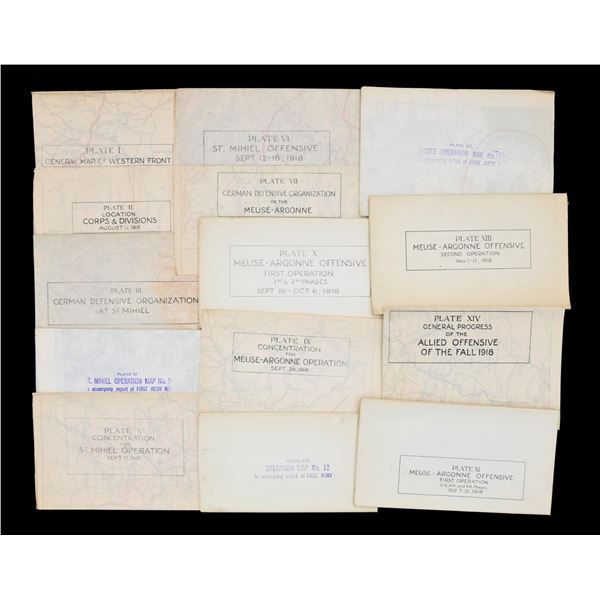 PLATE I
GENERAL MAP OF WESTERN FRONT
PLATE II
LOCATION
CORPS & DIVISIONS
AUGUST 11, 1918
PLATE III
GERMAN DEFENSIVE ORGANIZATION
AT ST MIHIEL
PLATE IV
ST. MIHIEL OPERATION MAP No.
to accompany report of FIRST ARMY
PLATE V
CONCENTRATION
FOR
ST MIHIEL OPERATION
SEPT 11, 1918
PLATE VI
ST. MIHIEL OFFENSIVE
SEPT 12-16, 1918
PLATE VII
GERMAN DEFENSIVE ORGANIZATION
IN THE
MEUSE-ARGONNE
PLATE X
MEUSE-ARGONNE OFFENSIVE
FIRST OPERATION
1ST & 2ND PHASES
SEPT 26 - OCT 6, 1918
PLATE IX
CONCENTRATION
FOR
MEUSE-ARGONNE OPERATION
SEPT 26, 1918
PLATE VIII
OPERATION MAP No. 12
To accompany report of FIRST ARMY
PLATE XII
SECRET OPERATION MAP No.
to accompany report of FIRST ARMY
PLATE XIII
MEUSE-ARGONNE OFFENSIVE
SECOND OPERATION
Nov 1-11, 1918
PLATE XIV
GENERAL PROGRESS
OF THE
ALLIED OFFENSIVE
OF THE FALL 1918
PLATE XI
MEUSE-ARGONNE OFFENSIVE
FIRST OPERATION
3rd, 4th and 5th Phases
Oct. 7-31, 1918